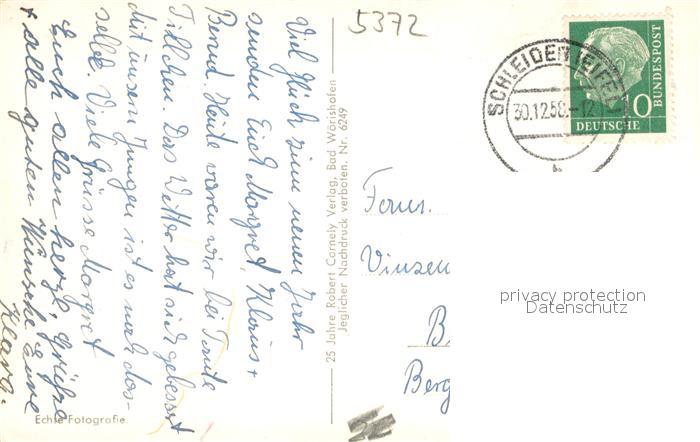 Viel Glück zum neuen Jahr
senden Euch Margret, Klaus +
Bernd. Heute waren wir bei Tante
Tillchen. Das Wetter hat sich gebessert
mit unserm Jungen ist es noch das-
selbe. Viele Grüsse Margret
Euch allen herzl. Grüße
+ alle guten Wünsche Eure
Klara.
Echte Fotografie
25 Jahre Robert Cornely Verlag, Bad Wörishofen
Jeglicher Nachdruck verboten. Nr. 6249
5372
SCHLEIDEN (EIFEL)
30.12.58.-12
b
10
DEUTSCHE
BUNDESPOST
Fam.
Vinzen
B
Berg
privacy protection
Datenschutz